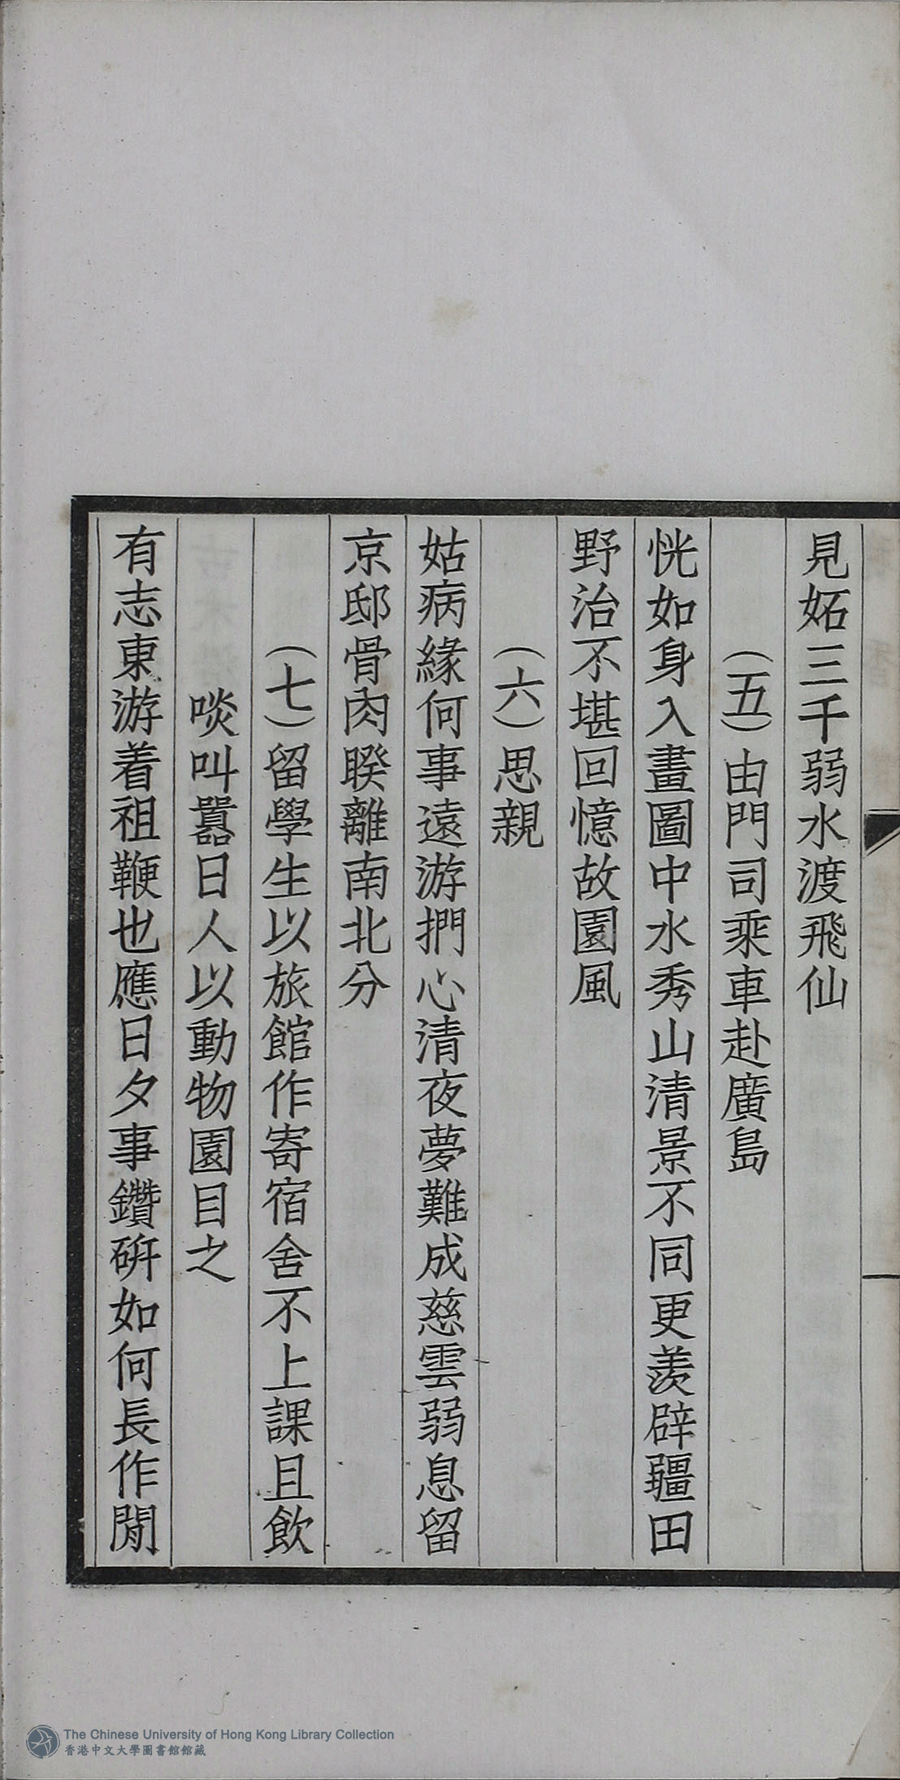 見妬三千弱水渡飛仙
（五）由門司乘車赴廣島
恍如身入畫圖中水秀山清景不同更羨辟疆田
野治不堪回憶故園風
（六）思親
姑病緣何事遠游捫心清夜夢難成慈雲弱息留
京邸骨肉睽離南北分
（七）留學生以旅館作寄宿舍不上課且飲
啖叫囂日人以動物園目之
有志東游着祖鞭也應日夕事鑽硏如何長作閒
The Chinese University of Hong Kong Library Collection
香港中文大學圖書館館藏